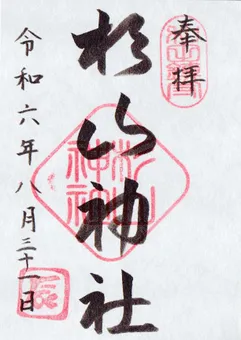 奉拝
杉山神社
令和六年八月三十一日
杉山神社
辰